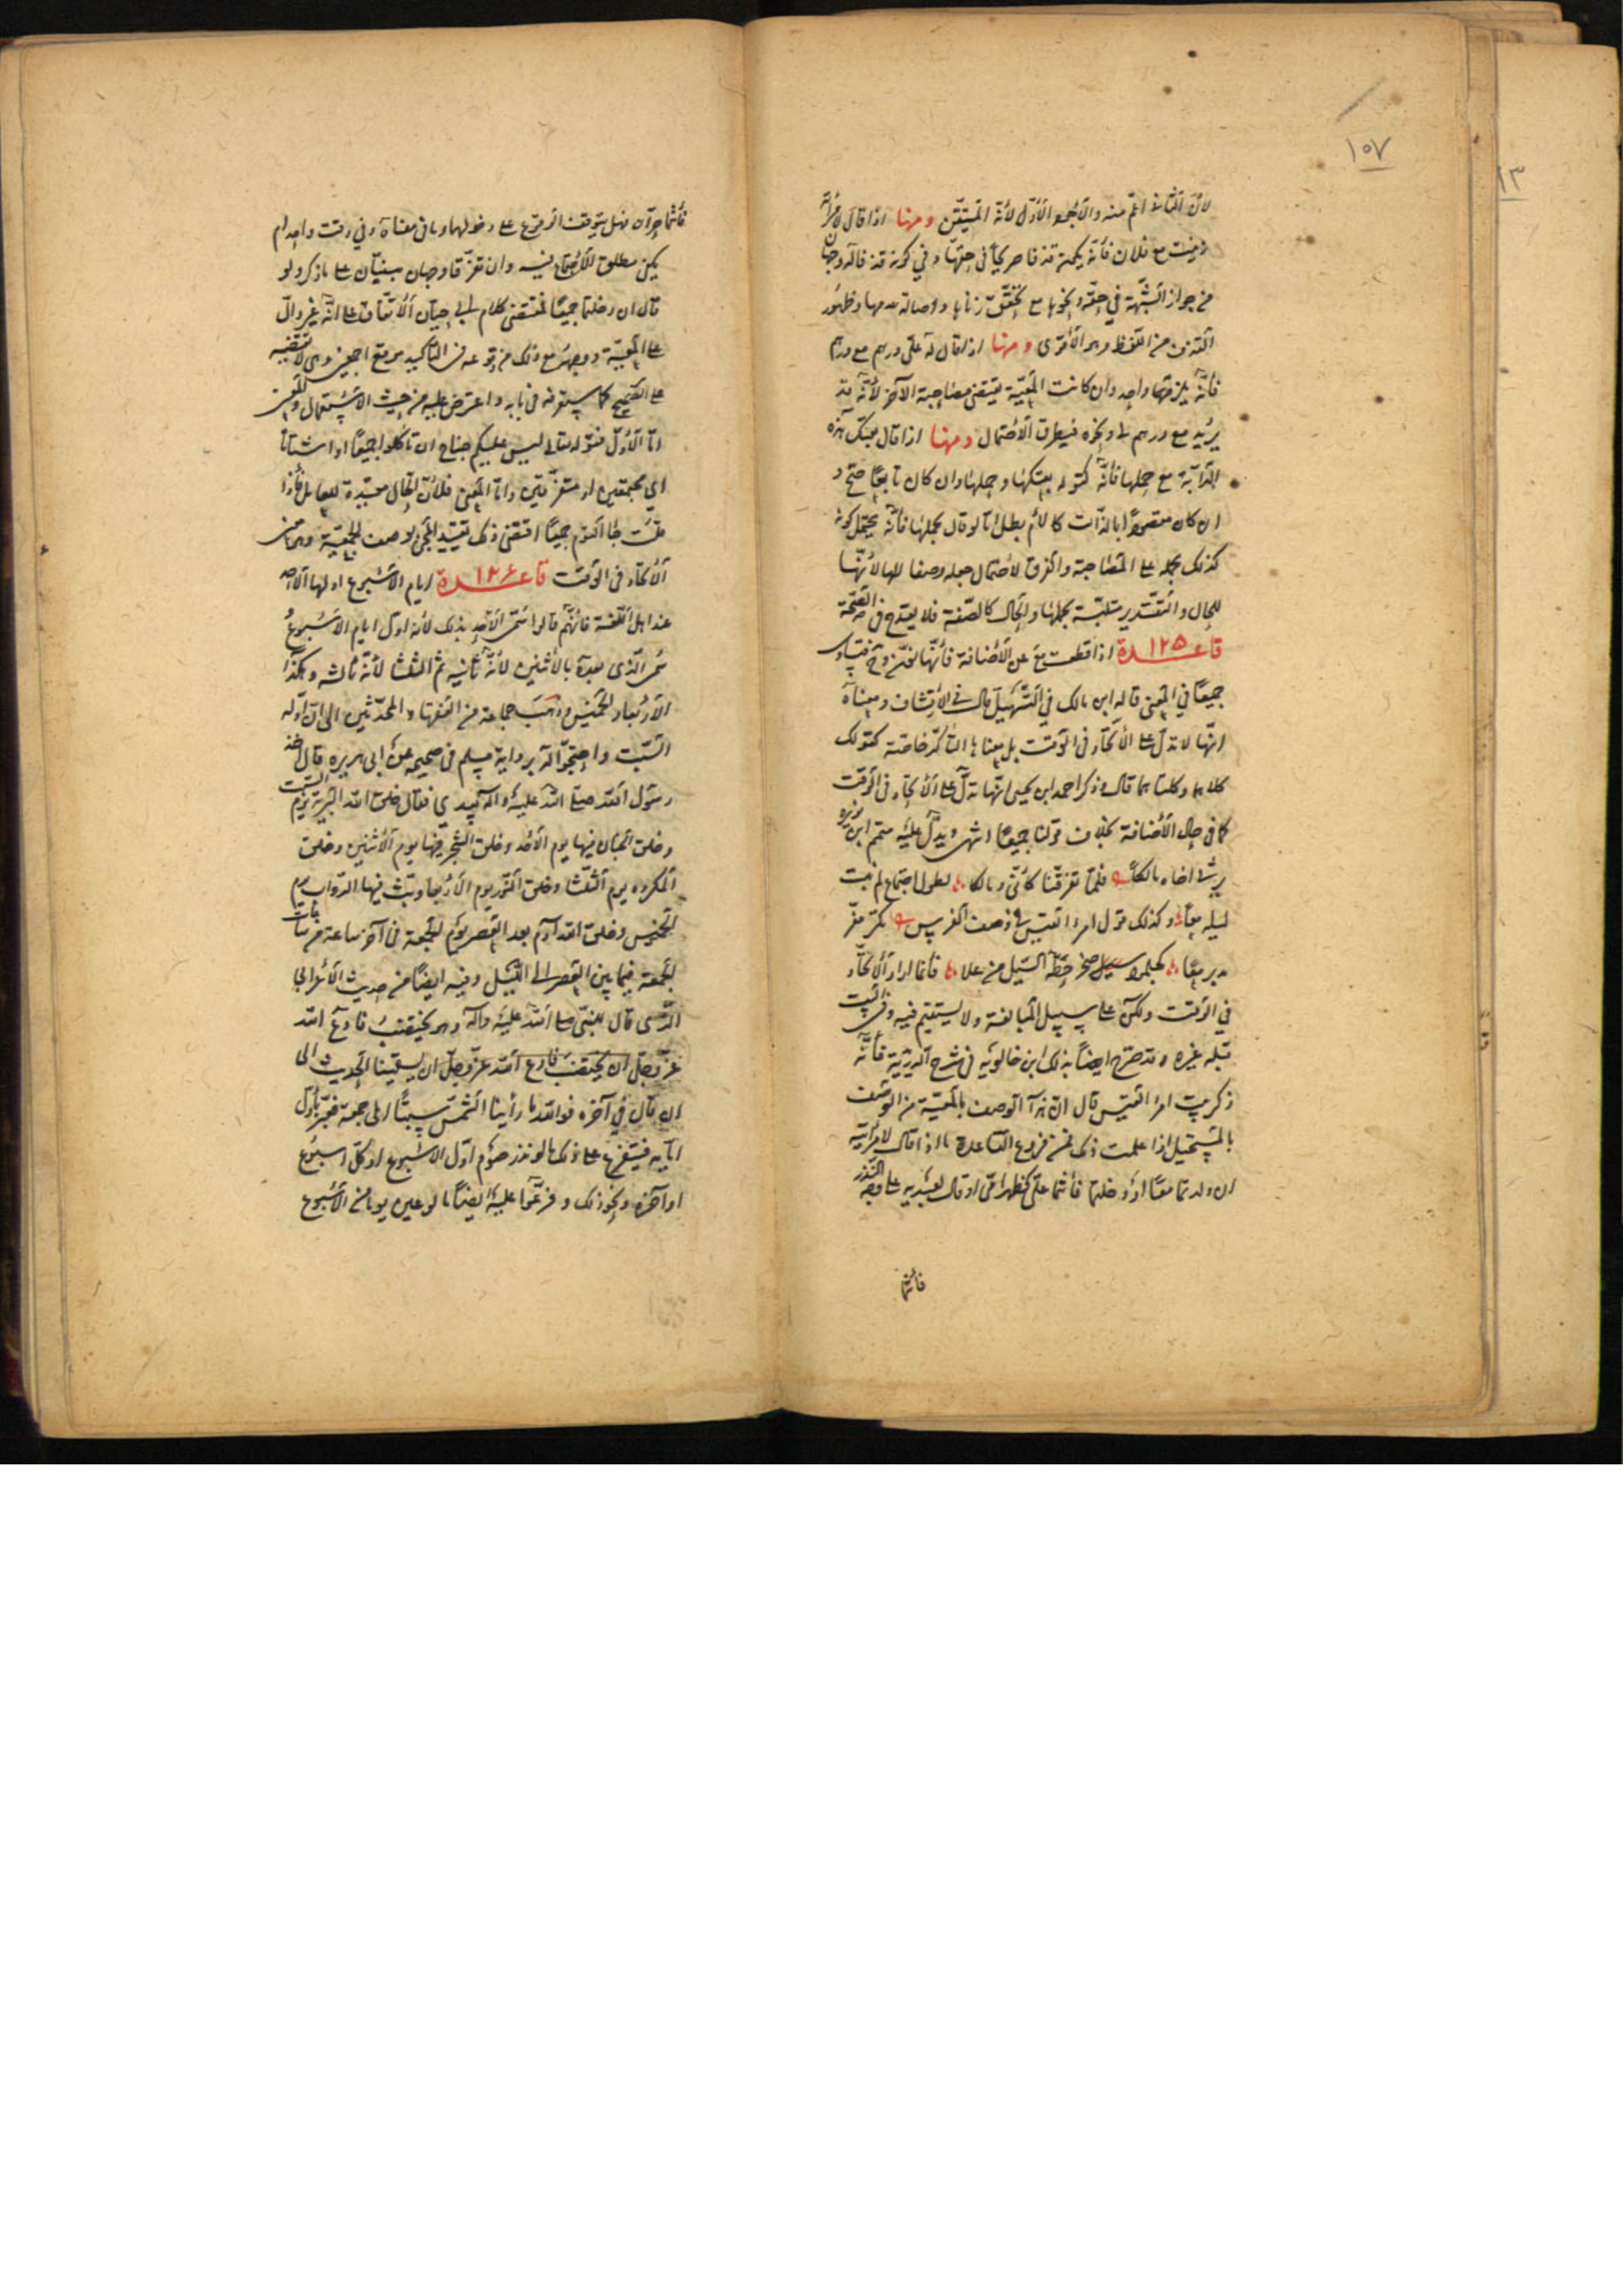 ١٠٧
١٣
لأن الثاني اعم منه والاجود الاول لأنه المتيقن ومنها اذا قال لامرأة
زنيت مع فلان فأنه يكون قذفا صريحا في حقها وفي كونه قذفا له وجهان
من جواز الشبهة في حقه ونحوها مع تحقق زناها واصالة عدمها وظهور
القذف من اللفظ وهو الأقوى ومنها اذا قال له علي درهم مع درهم
فأنه يلزمه واحد وان كانت المعية تقتضي مصاحبة الآخر لأنه قد
يريد مع درهم لي ونحوه فيطرق الاحتمال ومنها اذا قال بعتك هذه
الدابة مع حملها فأنه كقوله بعتكها وحملها وان كان تابعا صح و
ان كان مقصودا بالذات كالأم بطل اما لو قال بحملها فأنه يحتمل كونه
كذلك بحمله على المصاحبة والفرق لاحتمال جعله وصفا لها لأنها
للحال والتقدير متلبسة بحملها والحال كالصفة فلا يقدح في الصحة
قاعدة ١٢٥ اذا قطعت مع عن الأضافة فأنها تنون وح فتساوي
جميعا في المعنى قاله ابن مالك في التسهيل قال في الارتشاف ومعناه
انها لا تدل على الاتحاد في الوقت بل معناها التأكد خاصة كقولك
كلاهما وكلتاهما قال وذكر احمد ابن يحيى انها تدل على الاتحاد في الوقت
كما في حال الأضافة بخلاف قولنا جميعا انتهى ويدل عليه متمم ابن نويره
يرثي اخاه مالكا فلما تفرقنا كأني ومالكا لطول اجتماع لم نبت
ليله معا وكذلك قول امرء القيس في وصف الفرس مكر مفر
مدبر معا كجلمود صخر حطه السيل من علا فأنما اراد الاتحاد
في الوقت ولكن على سبيل المبالغة ولا يستقيم فيه وفي البيت
قبله غيره وقد صرح ايضا بذلك ابن خالويه في شرح الدريدية فأنه
ذكر بيت امرء القيس قال ان هذا الوصف بالمعية من الوصف
بالمستحيل اذا علمت ذلك فمن فروع القاعدة ما اذا قال لامرأتيه
ان ولدتما معا او دخلتما فأنتما علي كظهر امي او قال لعبديه على وجه النذر
فأنتما
فأنتما حران فهل يتوقف الوقوع على دخولهما وما في معناه في وقت واحد ام
يكفي مطلق الاجتماع فيه وان تفرقا وجهان مبنيان على ما ذكر ولو
قال ان دخلتما جميعا فمقتضى كلام ابي حيان الاتفاق على انه غير دال
على المعية ووجهه مع ذلك من قوعه في التأكيد موقع اجمعين وهي لا تقتضيه
على الصحيح كما ستعرفه في بابه واعترض عليه من حيث الاستعمال والمعنى
اما الاول فقوله تعالى ليس عليكم جناح ان تأكلوا جميعا او اشتاتا
اي مجتمعين او متفرقين واما المعنى فلان الحال مقيدة للعامل فأذا
قلت جاء القوم جميعا اقتضى ذلك تقييد المجئ بوصف الجمعية وهو من
الاتحاد في الوقت قاعدة ١٢٦ ايام الاسبوع اولها الاحد
عند اهل اللغة فانهم قالوا سمي الاحد بذلك لأنه اول ايام الاسبوع
سمي الذي بعده بالاثنين لأنه ثانيه ثم الثلثا لأنه ثالثه وهكذا
الأربعا والخميس وذهب جماعة من الفقهاء والمحدثين الى ان اوله
السبت واحتجوا له برواية مسلم في صحيحه عن ابي هريره قال اخذ
رسول الله صلى الله عليه وآله بيدي فقال خلق الله التربة يوم السبت
وخلق الجبال فيها يوم الأحد وخلق الشجر فيها يوم الاثنين وخلق
المكروه يوم الثلثا وخلق النور يوم الاربعا وبث فيها الدواب يوم
الخميس وخلق الله آدم بعد العصر يوم الجمعة في آخر ساعة من ساعات
الجمعة فيما بين العصر الى الليل وفيه ايضا من حديث الاعرابي
الذي قال للنبي صلى الله عليه وآله وهو يخطب فادع الله
عز وجل ان
ان قال في آخره فوالله ما رأينا الشمس سبتا الى جمعة فعبر باول
ايامه فيتفرع على ذلك ما لو نذر صوم اول الاسبوع او كل اسبوع
او آخره ونحو ذلك وفرعوا عليه ايضا ما لو عين يوما من الاسبوع